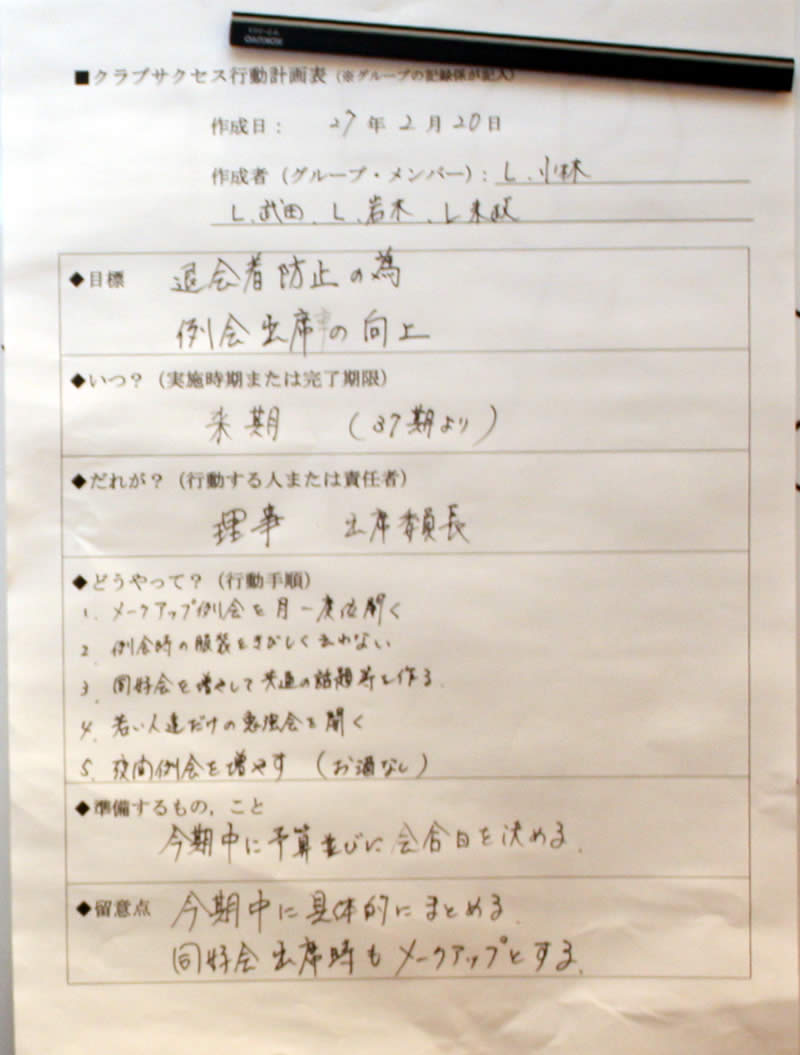 ■クラブサクセス行動計画表（※グループの記録係が記入）
作成日： 27年2月20日
作成者（グループ・メンバー）：L.小林
L.武田、L.岩木、L.末政
◆目標 退会者防止の為
例会出席率の向上
◆いつ？（実施時期または完了期限）
来期 （37期より）
◆だれが？（行動する人または責任者）
理事 出席委員長
◆どうやって？（行動手順）
1. メークアップ例会を月一度位開く
2. 例会時の服装をきびしく云わない
3. 同好会を増やして共通の話題等を作る.
4. 若い人達だけの懇談会を開く
5. 夜間例会を増やす（お酒なし）
◆準備するもの，こと
今期中に予算並びに会合日を決める.
◆留意点 今期中に具体的にまとめる.
同好会出席時もメークアップとする.